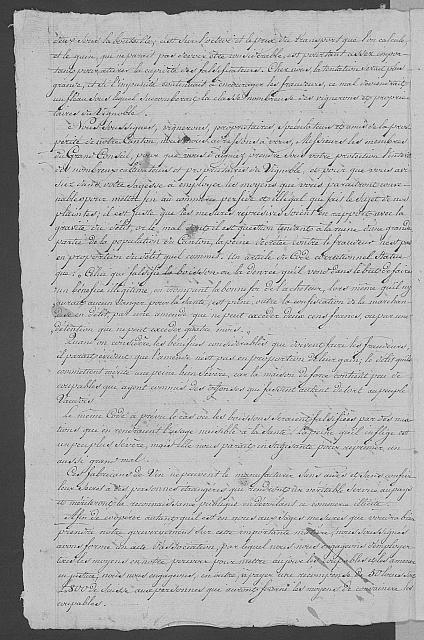 deux sous la bouteille; c'est sur l'octroi et le prix du transport que l'on calcule
et le gain, qui ne parait pas devoir être considérable, est pourtant assez impor
tant pour attirer la cupidité des falsificateurs. Chez nous, la tentation est plus
grande, et si l'impunité continuait à encourager les fraudeurs, ce mal deviendrait
un fléau sous lequel succomberait la classe nombreuse des vignerons et proprié
taires de vignoble.
Nous soussignés, vignerons, propriétaires, spéculateurs et amis de la pros
périté de notre Canton, nous nous adressons à vous, Messieurs les membres
du Grand Conseil, pour que vous daigniez prendre sous votre protection l'intérêt
de nombreux cultivateurs et propriétaires de Vignoble, et pour que vous avi
siez dans votre sagesse à employer les moyens que vous paraitront conve
nables pour mettre fin au commerce perfide et illégal qui fait le sujet de nos
plaintes; il est juste que les mesures répressives soient en rapport avec la
gravité du délit, or le mal dont il est question tendant à la ruine d'une grande
partie de la population du Canton, la peine décrétée contre le fraudeur n'est pas
en proportion du délit qu'il commet. Un article du Code correctionnel statue
que: "Celui qui falsifie la boisson ou la denrée qu'il vend dans le but de faire
un bénéfice illégitime, en trompant la bonne foi de l'acheteur, lors même qu'il n'y
aurait aucun danger pour la santé, est puni, outre la confiscation de la marchan
dise en délit, par une amende qui ne peut excéder deux cens francs, ou par une
détention qui ne peut excéder quatre mois."
Quand on considère les bénéfices considérables que doivent faire les fraudeurs,
il parait évident que l'amende n'est pas en proportion de leur gain; le délit qu'ils
commettent mérite une peine bien sévère, car la maison de force contient peu de
coupables qui ayent commis des offenses qui fassent autant de tort au peuple
Vaudois.
Le même Code a prévu le cas où les boissons seraient falsifiées par des mix
tions qui en rendraient l'usage nuisible à la santé. La peine qu'il inflige est
un peu plus sévère, mais elle nous parait insuffisante pour réprimer un
aussi grand mal.
Ces fabricans de Vin ne peuvent le manufacturer sans aides et sans confier
leur secret à des personnes étrangères qui rendront un véritable service au pays
et mériteront la reconnaissance publique en dévoilant ce commerce illicite.
Afin de coopérer autant qu'il est en nous aux sages mesures que voudra bien
prendre notre gouvernement sur cette importante matière, nous soussignés
avons formé un acte d'association, par lequel nous nous engageons d'employer
tous les moyens en notre pouvoir pour mettre au jour les coupables et les amener
en justice, nous nous engageons, en outre, à payer une récompense de 50 louis soit
L. 800 de Suisse aux personnes qui auront fourni les moyens de convaincre les
coupables.